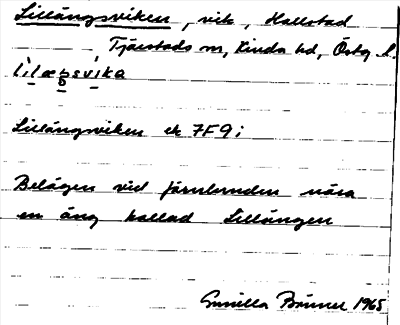 Lillängsviken, vik, Hallstad
Tjärstads sn, Kinda hd, Östg. l.
Lillängsviken ek 7F9i
Belägen vid järnlunden nära
en äng kallad Lillängen
Gunilla 1965